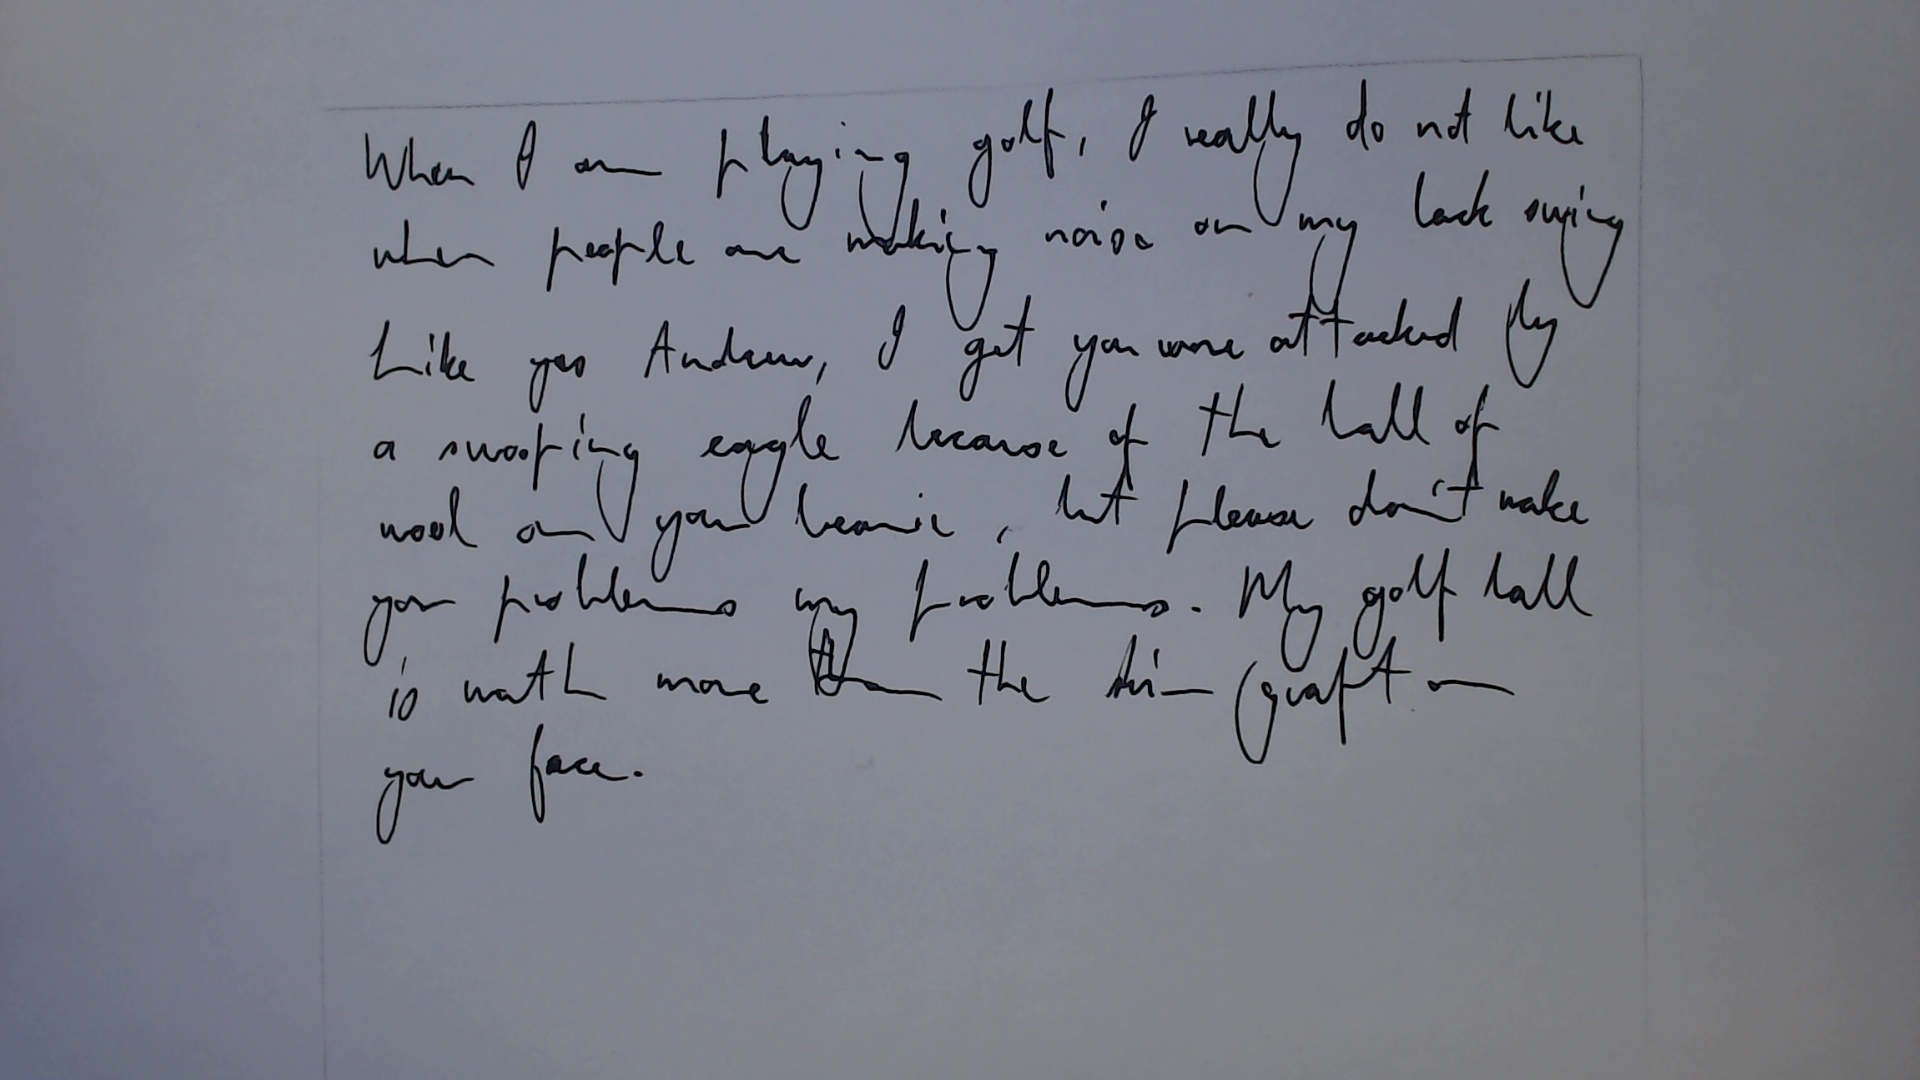 When I am playing golf, I really do not like
when people are making noise on my back swing
Like yes Andrew, I get you were attacked by
a swooping eagle because of the ball of
wool on your beanie, but please don't make
your problems my problems. My golf ball
is worth more than the skin graft on
your face.